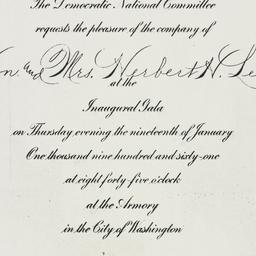 The Democratic National Committee
requests the pleasure of the company of
and Mrs. Herbert H. Le
at the
Inaugural Gala
on Thursday evening the nineteenth of January
One thousand nine hundred and sixty-one
at eight forty-five o'clock
at the Armory
in the City of Washington